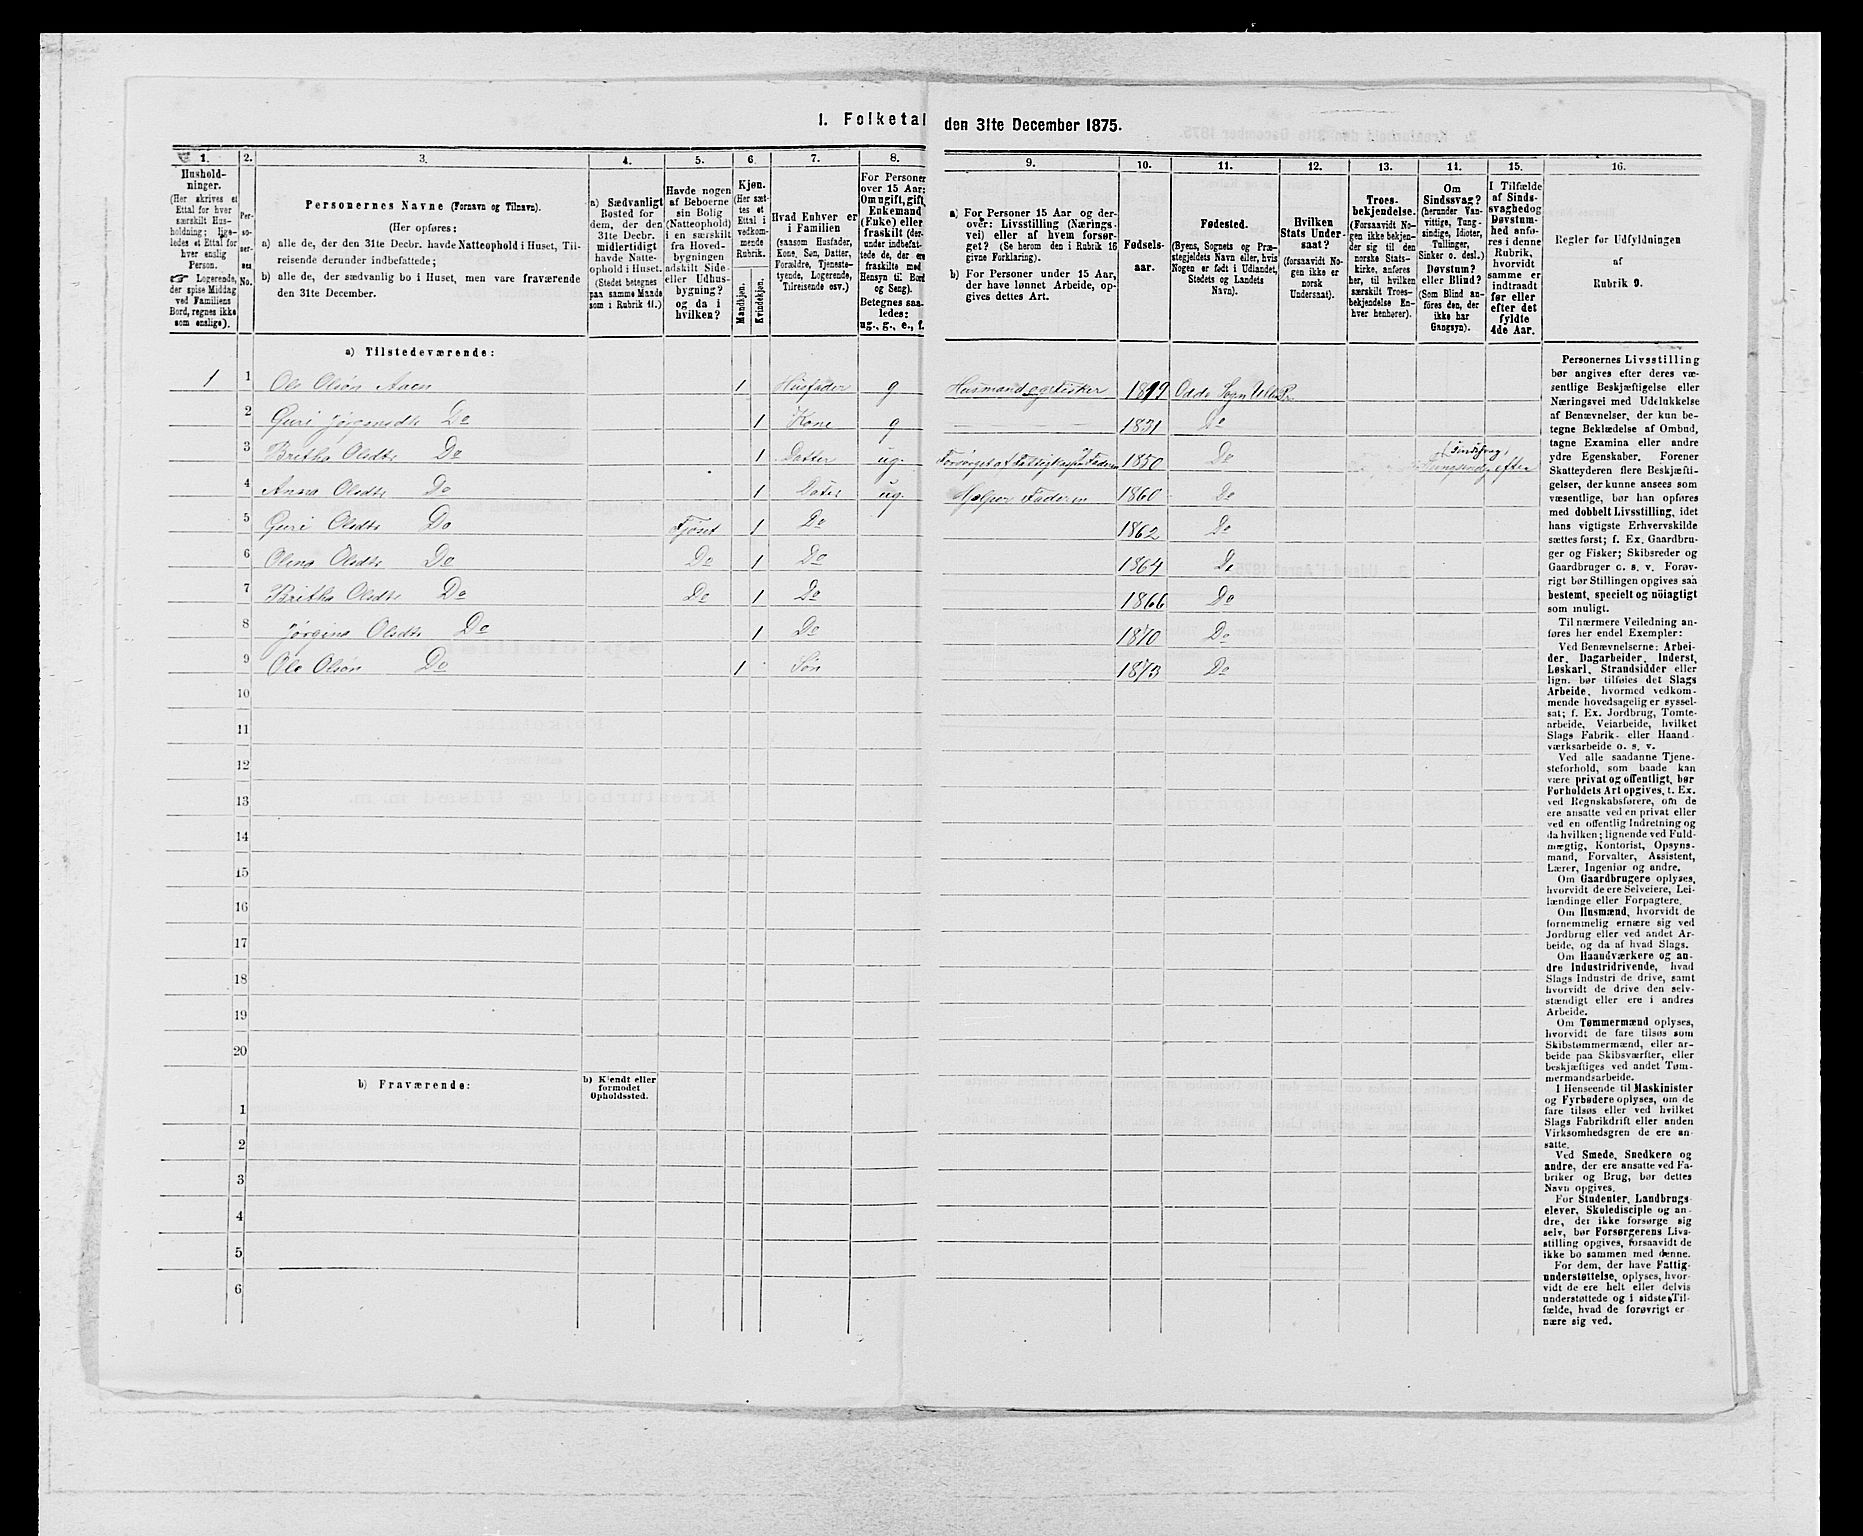 1. Folketal den 31te December 1875.
1.
Hushold-
ninger.
(Her skrives et
Ettal for hver
særskilt Hus-
holdning; lige-
ledes et Ettal for
hver enslig
Person.
Logerende,
der spise Middag
ved Familiens
Bord, regnes ikke
som enslige).
2.
Per-
so-
ner-
nes
No.
3.
Personernes Navne (Fornavn og Tilnavn).
(Her opføres:
a) alle de, der den 31te Decbr. havde Natteophold i Huset, Til-
reisende derunder indbefattede;
b) alle de, der sædvanlig bo i Huset, men vare fraværende
den 31te December.
4.
a) Sædvanligt
Bosted for
dem, der den
31te Decbr.
midlertidigt
havde Natte-
ophold i Huset.
(Stedet betegnes
paa samme Maade
som i Rubrik 11.)
5.
Havde nogen
af Beboerne
sin Bolig
(Natteophold)
i en særskilt
fra Hoved-
bygningen
adskilt Side-
eller Udhus-
bygning?
og da i
hvilken?
6.
Kjøn.
(Her sæt-
tes et
Ettal i
vedkom-
mende
Rubrik.
Mandkjøn.
Kvindekjøn.
7.
Hvad Enhver er
i Familien
(saasom Husfader,
Kone, Søn, Datter,
Forældre, Tjeneste-
tyende, Logerende,
Tilreisende osv.)
8.
For Personer
over 15 Aar:
Om ugift, gift,
Enkemand
(Enke) eller
fraskilt (der-
under indbefat-
tede de, der ere
fraskilte med
Hensyn til Bord
og Seng).
Betegnes saa-
ledes:
ug., g., e., f.
9.
a) For Personer 15 Aar og der-
over: Livsstilling (Nærings-
vei) eller af hvem forsør-
get? (Se herom den i Rubrik 16
givne Forklaring).
b) For Personer under 15 Aar,
der have lønnet Arbeide, op-
gives dettes Art.
10.
Fødsels-
aar.
11.
Fødested.
(Byens, Sognets og Præ-
stegjeldets Navn eller, hvis
Nogen er født i Udlandet,
Stedets og Landets
Navn).
12.
Hvilken
Stats Under-
saat?
(forsaavidt No-
gen ikke er
norsk
Undersaat).
13.
Troes-
bekjendelse.
(Forsaavidt No-
gen ikke bekjen-
der sig til den
norske Stats-
kirke, anføres
her, til hvilken
særskilt Troes-
bekjendelse En-
hver henhører).
14.
Om
Sindssvag?
(herunder Van-
vittige, Tung-
sindige, Idioter,
Tullinger,
Sinker o. desl.)
Døvstum?
eller Blind?
(Som Blind an-
føres den, der
ikke har
Gangsyn).
15.
I Tilfælde
af Sinds-
svaghed og
Døvstum-
hed anfø-
res i denne
Rubrik,
hvorvidt
samme er
indtraadt
før eller
efter det
fyldte
4de Aar.
16.
Regler for Udfyldningen
af
Rubrik 9.
a) Tilstedeværende:
1 1 Ole Olsøn Aaen 1 Husfader g Husmand og fisker 1819 Odde Sogn Ull. Pr
2 Guri Jørgensdtr Do 1 Kone g 1831 Do
3 Britha Olsdtr Do 1 Datter ug. Forsørget af Fattigkassen 1850 Do (Sindssvag) Tungsindig efter
4 Anna Olsdtr Do 1 Dater ug. Hjælper Faderen 1860 Do
5 Guri Olsdtr Do Fjøset 1 Do 1862 Do
6 Olena Olsdtr Do Do 1 Do 1864 Do
7 Britha Olsdtr Do Do 1 Do 1866 Do
8 Jørgina Olsdtr Do 1 Do 1870 Do
9 Ole Olsøn Do 1 Søn 1873 Do
10
11
12
13
14
15
16
17
18
19
20
b) Fraværende:
b) Kjendt eller
formodet
Opholdssted.
1
2
3
4
5
6
Personernes Livsstilling
bør angives efter deres væ-
sentlige Beskjæftigelse eller
Næringsvei med Udelukkelse
af Benævnelser, der kun be-
tegne Beklædelse af Ombud,
tagne Examina eller andre
ydre Egenskaber. Forener
Skatteyderen flere Beskjæfti-
gelser, der kunne ansees som
væsentlige, bør han opføres
med dobbelt Livsstilling, idet
hans vigtigste Erhvervskilde
sættes først; f. Ex. Gaardbru-
ger og Fisker; Skibsreder og
Gaardbruger o. s. v. Forøv-
rigt bør Stillingen opgives saa
bestemt, specielt og nöiagtigt
som muligt.
Til nærmere Veiledning an-
føres her endel Exempler:
Ved Benævnelserne: Arbei-
der, Dagarbeider, Inderst,
Løskarl, Strandsidder eller
lign. bør tilføies det Slags
Arbeide, hvormed vedkom-
mende hovedsagelig er syssel-
sat; f. Ex. Jordbrug, Tomte-
arbeide, Veiarbeide, hvilket
Slags Fabrik- eller Haand
værksarbeide o. s. v.
Ved alle saadanne Tjene-
steforhold, som baade kan
være privat og offentligt, bør
Forholdets Art opgives, t. Ex.
ved Regnskabsførere, om de
ere ansatte ved en privat eller
ved en offentlig Indretning og
da hvilken; lignende ved Fuld-
mægtig, Kontorist, Opsyns-
mand, Forvalter, Assistent,
Lærer, Ingeniør og andre.
Om Gaardbrugere oplyses,
hvorvidt de ere Selveiere, Lei-
lændinge eller Forpagtere.
Om Husmænd, hvorvidt de
fornemmelig ernære sig ved
Jordbrug eller ved andet Ar-
beide, og da af hvad Slags.
Om Haandværkere og an-
dre Industridrivende, hvad
Slags Industri de drive, samt
hvorvidt de drive den selv-
stændigt eller ere i andres
Arbeide.
Om Tømmermænd oplyses,
hvorvidt de fare tilsøs som
Skibstømmermænd, eller ar-
beide paa Skibsværfter, eller
beskjæftiges ved andet Tøm-
mermandsarbeide.
I Henseende til Maskinister
og Fyrbødere oplyses, om de
fare tilsøs eller ved hvilket
Slags Fabrikdrift eller anden
Virksomhedsgren de ere an-
satte.
Ved Smede, Snedkere og
andre, der ere ansatte ved Fa-
briker og Brug, bør dettes
Navn opgives.
For Studenter, Landbrugs-
elever, Skoledisciple og an-
dre, der ikke forsørge sig
selv, bør Forsørgerens Livs-
stilling opgives, forsaavidt de
ikke bo sammen med denne.
For dem, der have Fattig-
understøttelse, oplyses, hvor-
vidt de ere helt eller delvis
understøttede og i sidste Til-
fælde, hvad de forøvrigt er-
nære sig ved.